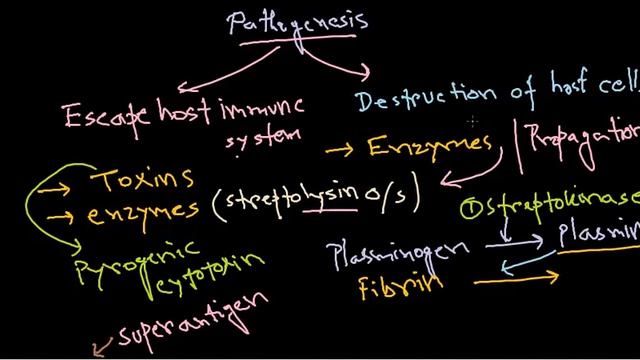 Pathogenesis
Escape host immune
system
→ Toxins
→ enzymes (streptolysin o/s)
Pyrogenic
cytotoxin
superantigen
Destruction of host cell
→ Enzymes
Propagation
① streptokinase
Plasminogen → Plasmin
Fibrin →